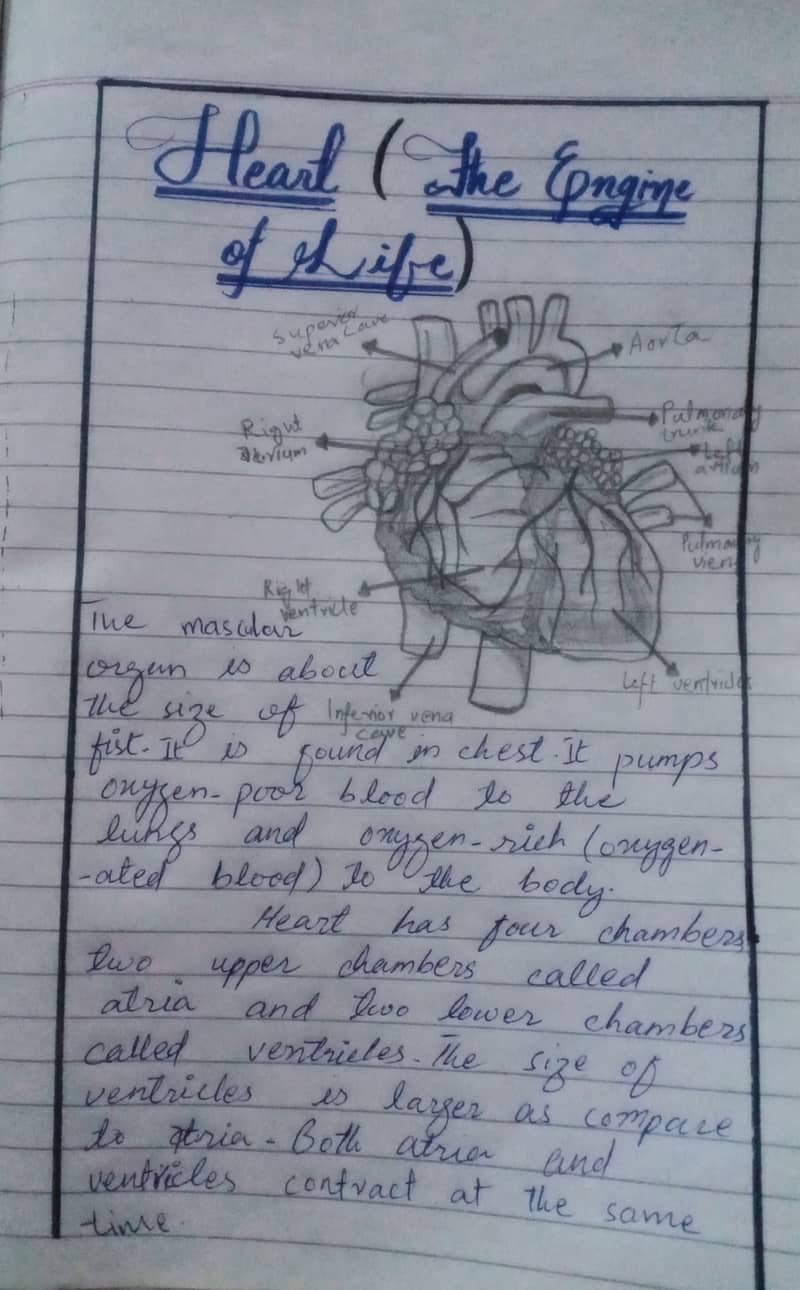 Heart (The Engine
of Life)
Superior
vena cave
Aorta
Pulmonary
trunk
Right
Atrium
Left
atrium
Pulmonary
vien
Right
ventricle
Left ventricle
Inferior vena
cave
The mascular
organ is about
the size of
fist. It is found in chest. It pumps
oxygen-poor blood to the
lungs and oxygen-rich (oxygen-
-ated blood) to the body.
Heart has four chambers
two upper chambers called
atria and two lower chambers
called ventricles. The size of
ventricles is larger as compare
to atria. Both atria and
ventricles contract at the same
time.